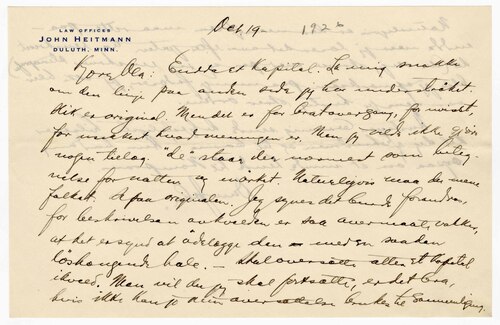 LAW OFFICES
JOHN HEITMANN
DULUTH, MINN.
Oct 19 - 192
Kjære Ola: Endda et Kapitel. La mig snakke
om den linje paa anden side jeg har understrøket.
Slik er original. Men det er for brat overgang, for uvist,
for usikkert hvad meningen er. Men jeg vilde ikke gjøre
nogen ting. "de" staar der nærmest som beteg-
nelse for natten og mørket. Naturligvis maa det mene
folket. Se paa originalen. Jeg synes det burde forandres,
for beskrivelsen av kvelden er saa overmaate vakker,
at det er synd at ødelægge den med en saadan
løshængende hale. - Skal oversætte alter et Kapitel
ikveld. Men vil du jeg skal fortsætte, er det bra,
hvis ikke kan jo din oversættelse brukes til Sammenligning.